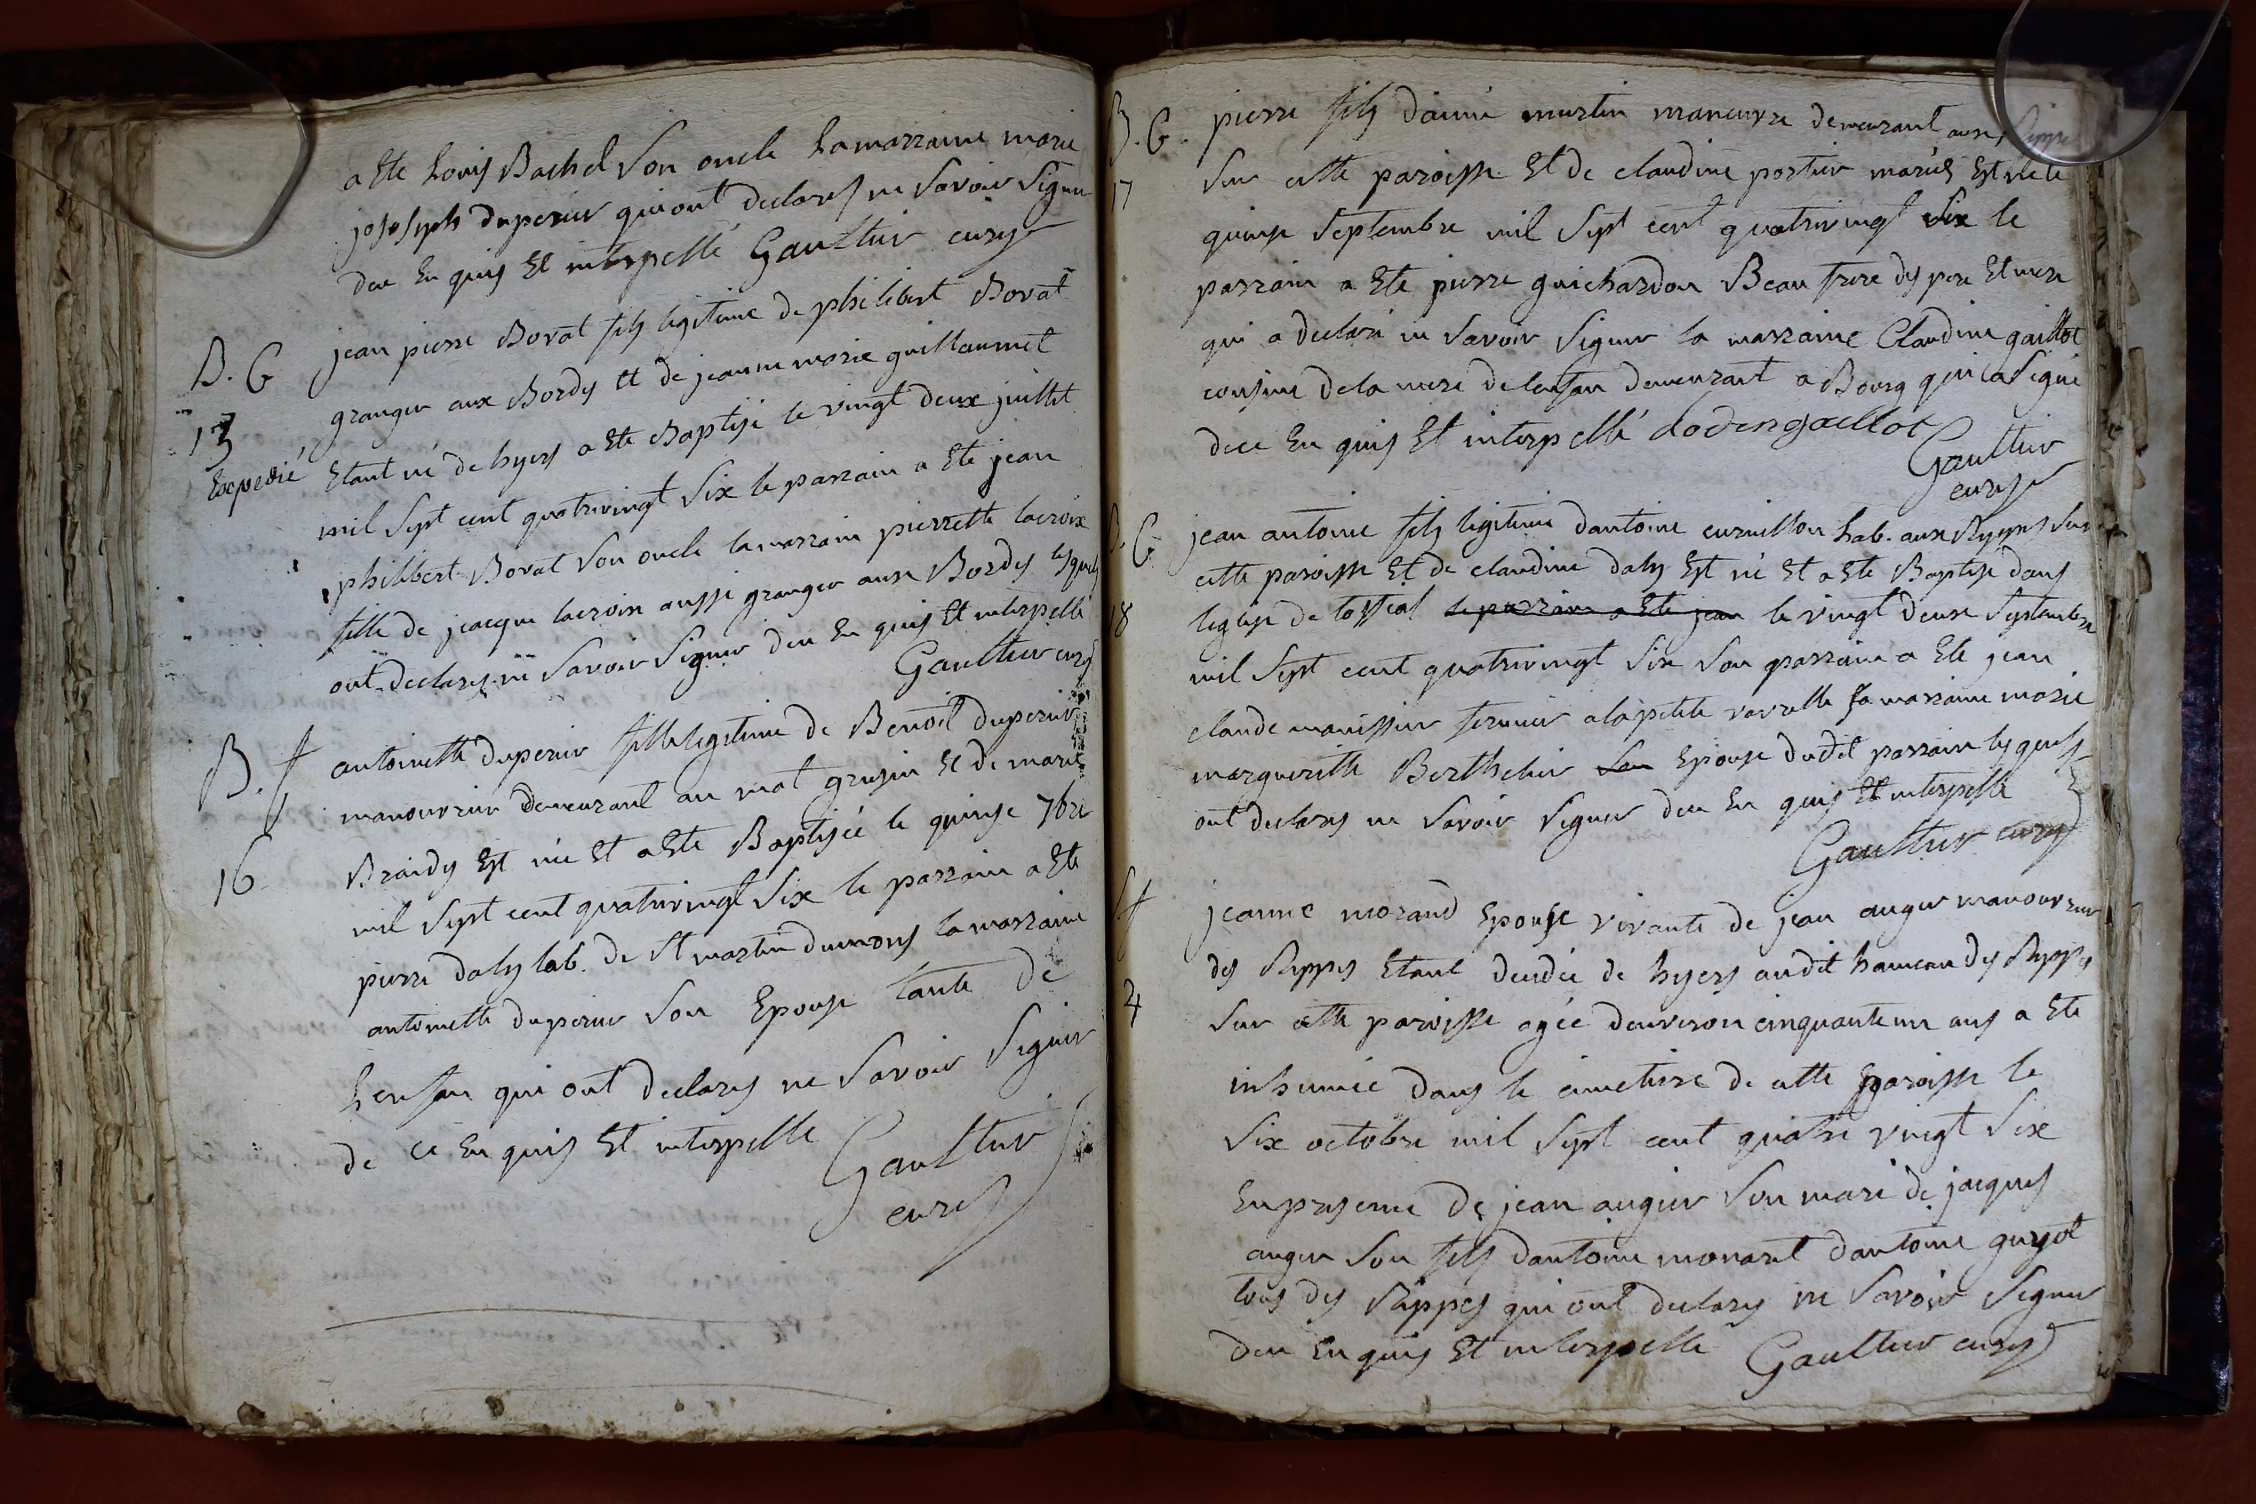 a Ete Louis Bachel Son oncle Lamarraine marie
josseph duperier qui ont declarés ne Savoir Signer
dece En quis Et interpellé Gaultier curé
B. G jean pierre Borat fils legitime de philibert Borat
granger aux Bordes et de jeanne marie guillaumet
13
Expedié Etant né de hyers a Ete Baptisé le vingt deux juillet
mil Sept cent quatrevingt Six le parrain a Ete jean
philibert Borat Son oncle la marraine pierrette lacroix
fille de jacque lacroix aussi granger aux Bordes lesquels
ont declarés ne Savoir Signer dece En quis Et interpellé
Gaultier curé
B. f antoinette duperier fille legitime de Benoit duperier
manouvrier demeurant au mat grusin Et de marie
16 Braidy Est née Et a Ete Baptisée le quinze 7bre
mil Sept cent quatrevingt Six le parrain a Ete
pierre daly lab. de St martin dumons la marraine
antoinette duperier Son Epouse tante de
Lenfan qui ont declarés ne Savoir Signer
de ce En quis Et interpelle Gaultier
curé
B. G. pierre fils daimé martin maneuvre demeurant aux Sippes
17 Sur cette paroisse Et de claudine portier mariés Est né le
quinze Septembre mil Sept cent quatrevingt Six le
parrain a Ete pierre guichardon Beau frere des pere Et mere
qui a declaré ne Savoir Signer la marraine Claudine gaillot
cousine de la mere de lenfan demeurant a Bourg qui a Signé
dece En quis Et interpellé clodingaellot
Gaultier
curé
B. G jean antoine fils legitime dantoine curnillon hab. aux Rippes Sur
cette paroisse Et de claudine daly Est né Et a Ete Baptisé dans
18 leglise de tossiat le parrain a Ete jean le vingt deux Septembre
mil Sept cent quatrevingt Six Son parrain a Ete jean
claude manissier fermier a la petite vavrette Sa marraine marie
margueritte Berthelier Son Epouse dudit parrain lesquels
ont declarés ne Savoir Signer dece En quis Et interpellé
Gaultier curé
Sf jeanne morand Epouse vivante de jean auger manouvrier
des Rippes Etant decedée de hyers audit hameau des Rippes
4 Sur cette paroisse agée denviron cinquante un ans a Ete
inhumée dans le cimetiere de cette paroisse le
Six octobre mil Sept cent quatre vingt Six
En presence de jean augier Son mari de jacques
auger Son fils dantoine morant dantoine guyot
tous des Rippes qui ont declarés ne Savoir Signer
dece En quis Et interpelle Gaultier curé